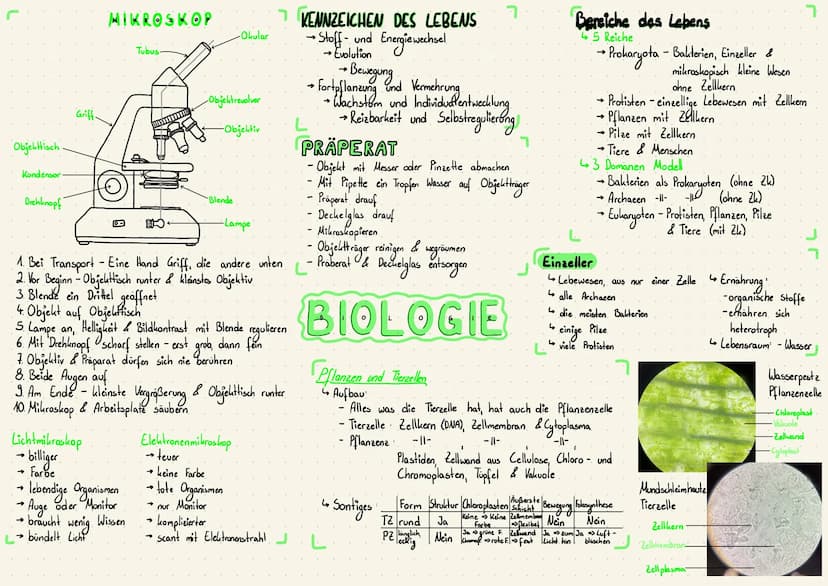 MIKROSKOP
Okular
Tubus
Objektrevolver
Griff
Objektiv
Objekttisch
Kondensor
Drehknopf
Blende
Lampe
1. Bei Transport - Eine Hand Griff, die andere unten
2. Vor Beginn - Objekttisch runter & kleinstes Objektiv
3. Blende ein Drittel geöffnet
4. Objekt auf Objekttisch
5. Lampe an, Helligkeit & Bildkontrast mit Blende regulieren
6. Mit Drehknopf scharf stellen - erst grob, dann fein
7. Objektiv & Präparat dürfen sich nie berühren
8. Beide Augen auf
9. Am Ende - kleinste Vergrößerung & Objekttisch runter
10. Mikroskop & Arbeitsplatz säubern
Lichtmikroskop
→ billiger
→ Farbe
→ lebendige Organismen
→ Auge oder Monitor
→ braucht wenig Wissen
→ bündelt Licht
Elektronenmikroskop
→ teuer
→ keine Farbe
→ tote Organismen
→ nur Monitor
→ komplizierter
→ scant mit Elektronenstrahl
KENNZEICHEN DES LEBENS
→ Stoff- und Energiewechsel
→ Evolution
→ Bewegung
→ Fortpflanzung und Vermehrung
→ Wachstum und Individualentwicklung
→ Reizbarkeit und Selbstregulierung
PRÄPERAT
- Objekt mit Messer oder Pinzette abmachen
- Mit Pipette ein Tropfen Wasser auf Objektträger
- Präperat drauf
- Deckelglas drauf
- Mikroskopieren
- Objektträger reinigen & wegräumen
- Präberat & Deckelglas entsorgen
BIOLOGIE
Bereiche des Lebens
↳ 5 Reiche
→ Prokaryota - Bakterien, Einzeller &
mikroskopisch kleine Wesen
ohne Zellkern
→ Protisten - einzellige Lebewesen mit Zellkern
→ Pflanzen mit Zellkern
→ Pilze mit Zellkern
→ Tiere & Menschen
↳ 3 Domänen Modell
→ Bakterien als Prokaryoten (ohne Zk)
→ Archaeen -||- -||- (ohne Zk)
→ Eukaryoten - Protisten, Pflanzen, Pilze
& Tiere (mit Zk)
Einzeller
↳ Lebewesen, aus nur einer Zelle
↳ alle Archaeen
↳ die meisten Bakterien
↳ einige Pilze
↳ viele Protisten
↳ Ernährung:
- organische Stoffe
- ernähren sich
heterotroph
↳ Lebensraum: - Wasser
Pflanzen und Tierzellen
↳ Aufbau:
- Alles was die Tierzelle hat, hat auch die Pflanzenzelle
- Tierzelle: Zellkern (DNA), Zellmembran & Cytoplasma
- Pflanzenz: -||- -||- -||-
Plastiden, Zellwand aus Cellulose, Chloro- und
Chromoplasten, Tüpfel & Vakuole
↳ Sontiges:
Form Struktur Chloroplasten Äußerste Schicht Bewegung Fotosynthese
TZ rund Ja Keine → Keine Farbe Zellmembran → flexibel Nein Nein
PZ länglich eckig Nein Ja → grüne F. Zellwand → fest Ja → zum Licht hin Ja → Luft-
Wasserpest
Pflanzenzelle
Chloroplast
Vakuole
Zellwand
Cytoplast
Mundschleimhaut
Tierzelle
Zellkern
Zellmembran
Zellplasma